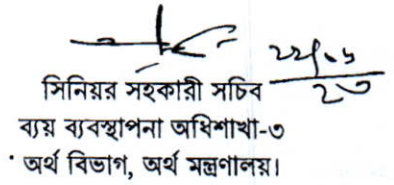 সিনিয়র সহকারী সচিব
ব্যয় ব্যবস্থাপনা অধিশাখা-৩
অর্থ বিভাগ, অর্থ মন্ত্রণালয়।